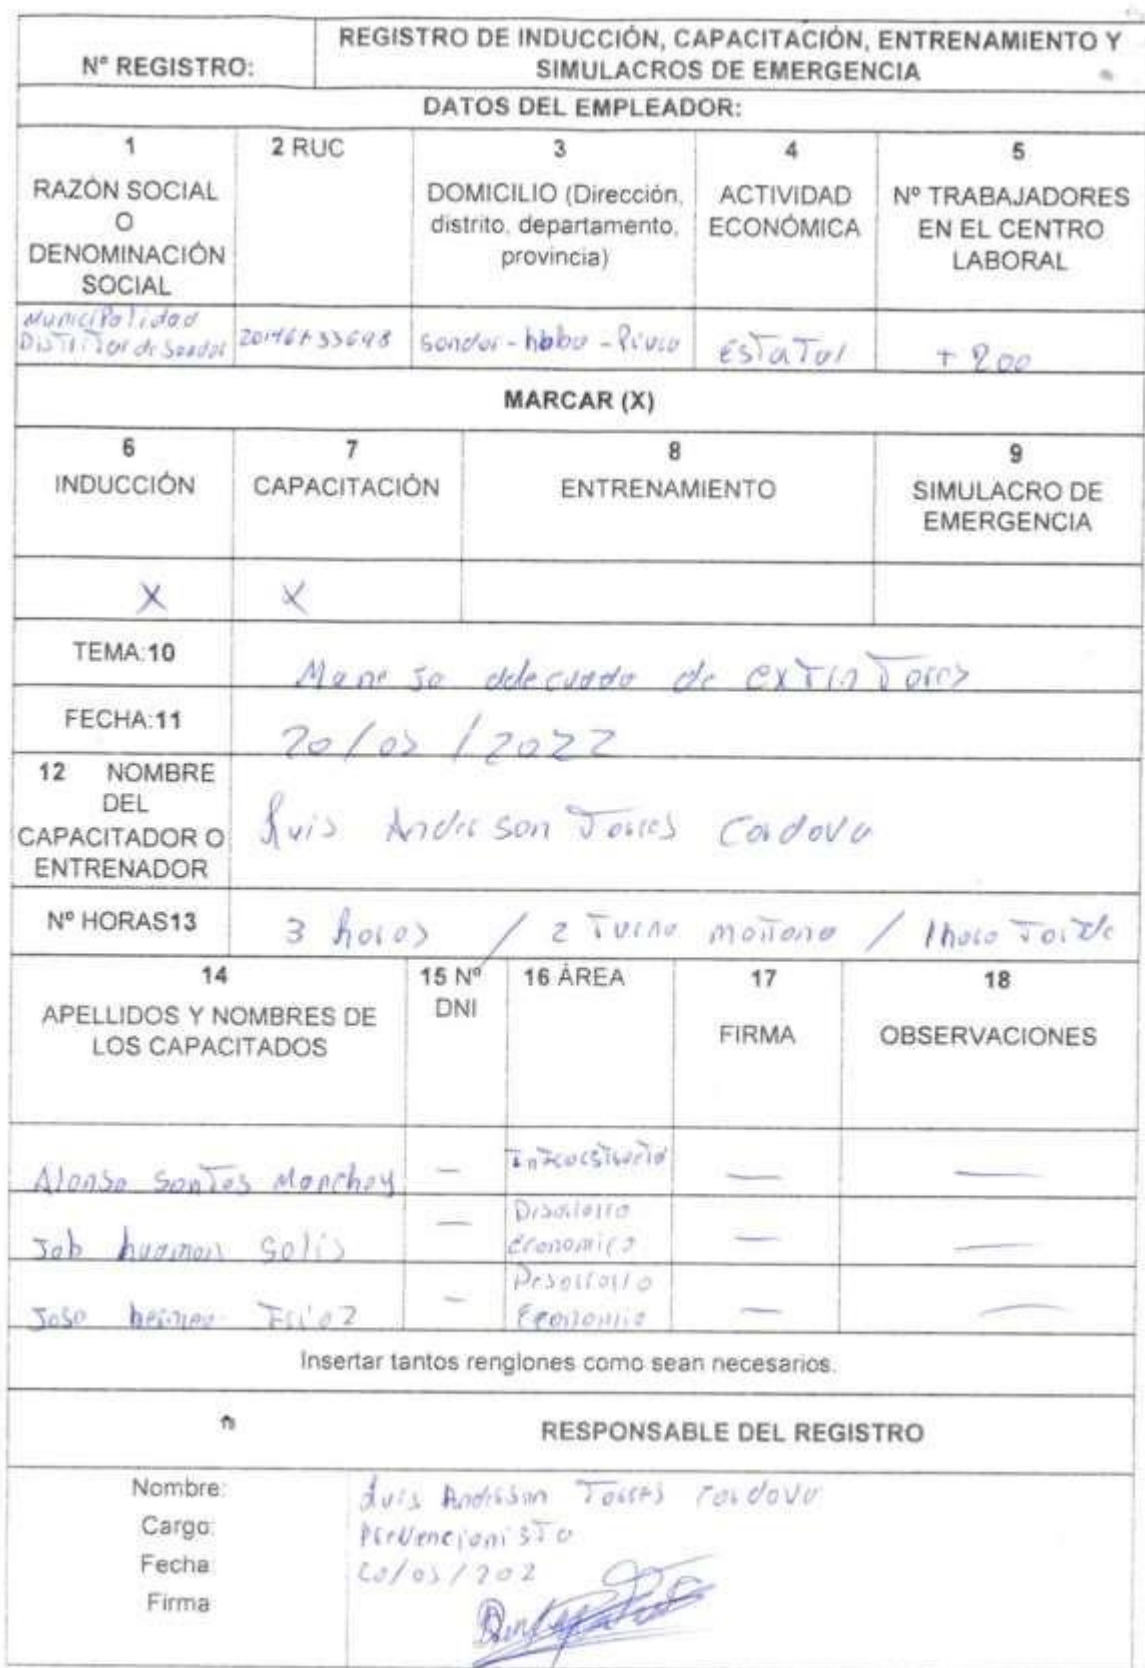 Nº REGISTRO:
REGISTRO DE INDUCCIÓN, CAPACITACIÓN, ENTRENAMIENTO Y
SIMULACROS DE EMERGENCIA
DATOS DEL EMPLEADOR:
1
RAZÓN SOCIAL
O
DENOMINACIÓN
SOCIAL
2 RUC
3
DOMICILIO (Dirección,
distrito, departamento,
provincia)
4
ACTIVIDAD
ECONÓMICA
5
Nº TRABAJADORES
EN EL CENTRO
LABORAL
Municipalidad
Distrital de Sondor
Sondor - - Piura
Estatal
+ 200
MARCAR (X)
6
INDUCCIÓN
7
CAPACITACIÓN
8
ENTRENAMIENTO
9
SIMULACRO DE
EMERGENCIA
X
X
TEMA:10
Manejo adecuado de extintores
FECHA:11
20/03/2022
12 NOMBRE
DEL
CAPACITADOR O
ENTRENADOR
Luis Anderson Torres Cordova
Nº HORAS13
3 horas / 2 Turno mañana / 1 hora Tarde
14
APELLIDOS Y NOMBRES DE
LOS CAPACITADOS
15 Nº
DNI
16 ÁREA
17
FIRMA
18
OBSERVACIONES
Alonso Santos Manchay — — —
Job huaman Solis — Desarrollo
Economico — —
— Desarrollo
— —
Insertar tantos renglones como sean necesarios.
RESPONSABLE DEL REGISTRO
Nombre:
Luis Anderson Torres Cordova
Cargo:
Prevencionista
Fecha
20/03/202
Firma